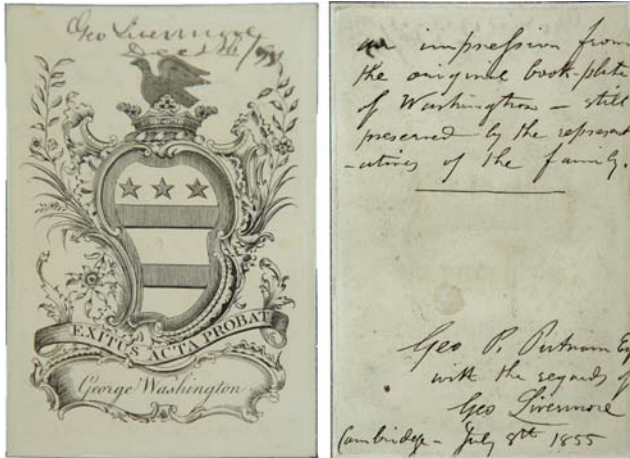 Geo Livermore
EXITUS ACTA PROBAT
George Washington
an impression from
the original book-plate
of Washington – still
preserved by the represent
-atives of the family.
Geo P. Putnam Esq
with the regards of
Geo Livermore
Cambridge – July 8th 1855